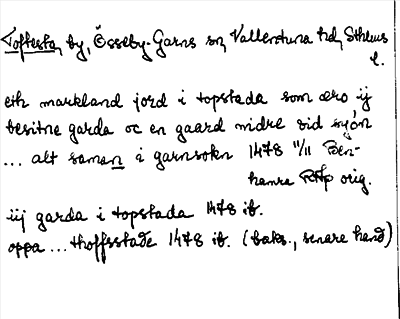 Toftesta, by, Össeby-Garns sn, Vallentuna hd, Sthlms
l.
eth markland jord i topstada som æro ij
besitne garda oc en gaard nidre vid siøn
... alt saman i garnsokn 1478 11/11 Ben-
hamra RAp orig.
iij garda i topstada 1478 ib.
oppa ... thoffstade 1478 ib. (baks., senare hand)